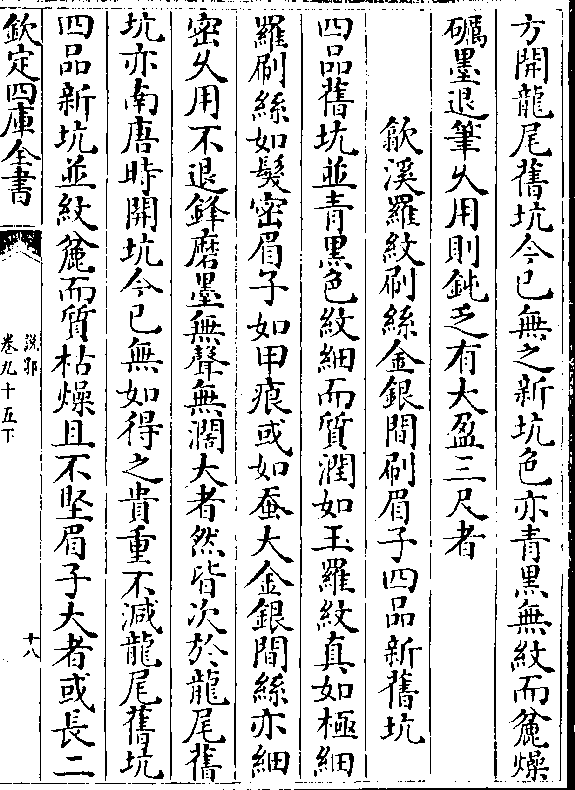 方開龍尾舊坑今已無之新坑色亦青黑無紋而麄燥
礪墨退筆乆用則鈍乏有大盈三尺者
歙溪羅紋刷絲金銀間刷眉子四品新舊坑
四品舊坑並青黑色紋細而質潤如玉羅紋真如極細
羅刷絲如髮密眉子如甲痕或如蚕大金銀間絲亦細
密乆用不退鋒磨墨無聲無濶大者然皆次於龍尾舊
坑亦南唐時開坑今已無如得之貴重不減龍尾舊坑
四品新坑並紋麄而質枯燥且不堅眉子大者或長二
欽定四庫全書
說郛
卷九十五下
十八